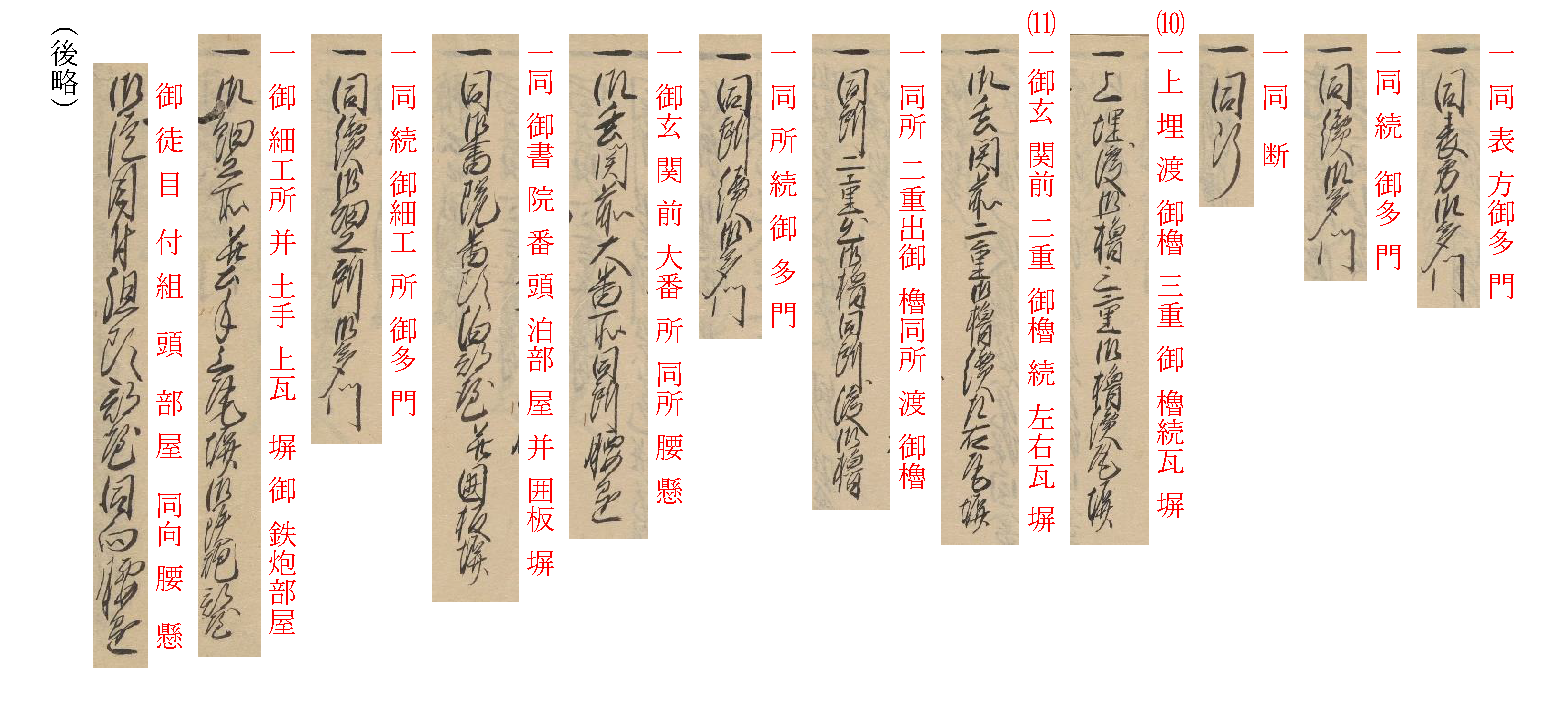 一同表方御多門
一同続御多門
一同断
⑽
一上埋渡御櫓三重御櫓続瓦塀
⑾
一御玄関前二重御櫓続左右瓦塀
一同所二重出御櫓同所渡御櫓
一同所続御多門
一御玄関前大番所同所腰懸
一同御書院番頭泊部屋并囲板塀
一同続御細工所御多門
一御細工所并土手上瓦塀御鉄炮部屋
御徒目付組頭部屋同向腰懸
（後略）